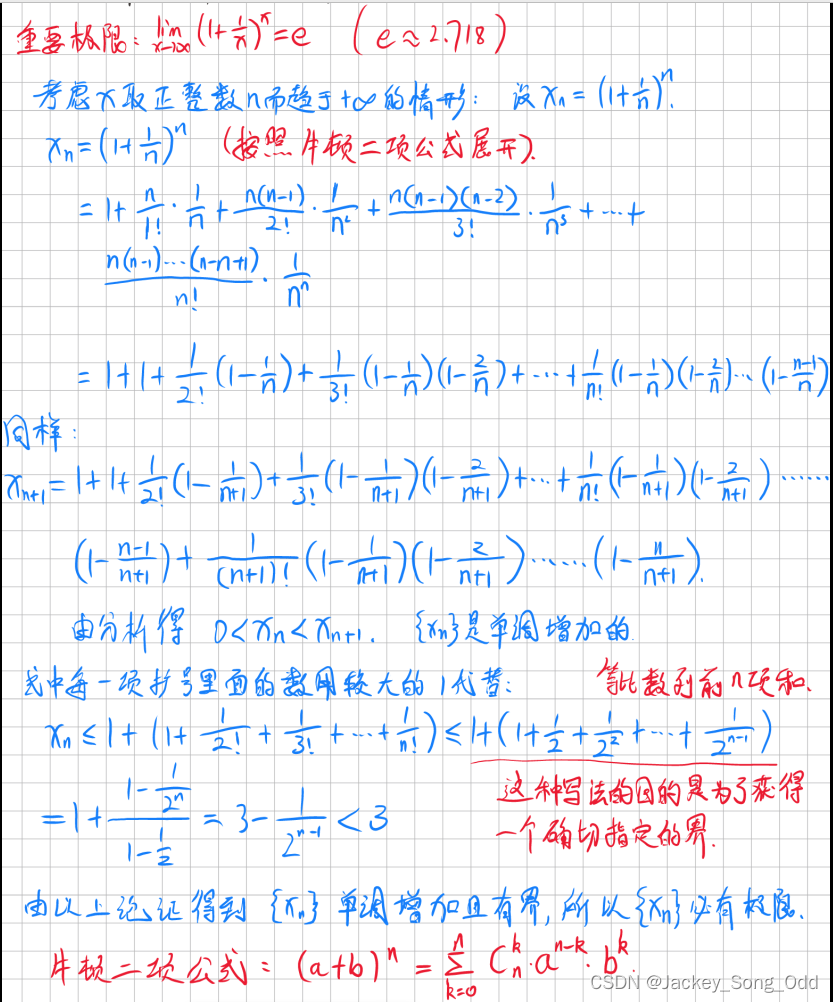 重要极限: lim x→∞ (1+1/x)^x = e (e≈2.718)
考虑x取正整数n而趋于+∞的情形: 设 xn = (1+1/n)^n.
xn = (1+1/n)^n (按照牛顿二项公式展开).
= 1 + n/1! · 1/n + n(n-1)/2! · 1/n² + n(n-1)(n-2)/3! · 1/n³ + ··· +
n(n-1)···(n-n+1)/n! · 1/n^n
= 1+1+ 1/2! (1-1/n) + 1/3! (1-1/n)(1-2/n) + ··· + 1/n! (1-1/n)(1-2/n)···(1-(n-1)/n)
同样:
xn+1 = 1+1+ 1/2! (1-1/(n+1)) + 1/3! (1-1/(n+1))(1-2/(n+1)) + ··· + 1/n! (1-1/(n+1))(1-2/(n+1)) ······
(1-(n-1)/(n+1)) + 1/(n+1)! (1-1/(n+1))(1-2/(n+1)) ······ (1-n/(n+1)).
由分析得 0<xn<xn+1. {xn}是单调增加的.
式中每一项括号里面的数用较大的1代替: 等比数列前n项和.
xn ≤ 1+(1+1/2!+1/3!+···+1/n!) ≤ 1+(1+1/2+1/2²+···+1/2^(n-1))
= 1+ (1-1/2^n)/(1-1/2) = 3 - 1/2^(n-1) < 3
这种写法的目的是为了获得
一个确切指定的界.
由以上论证得到 {xn} 单调增加且有界, 所以{xn}必有极限.
牛顿二项公式: (a+b)^n = Σ k=0 n C_n^k · a^(n-k) · b^k.
CSDN @Jackey_Song_Odd